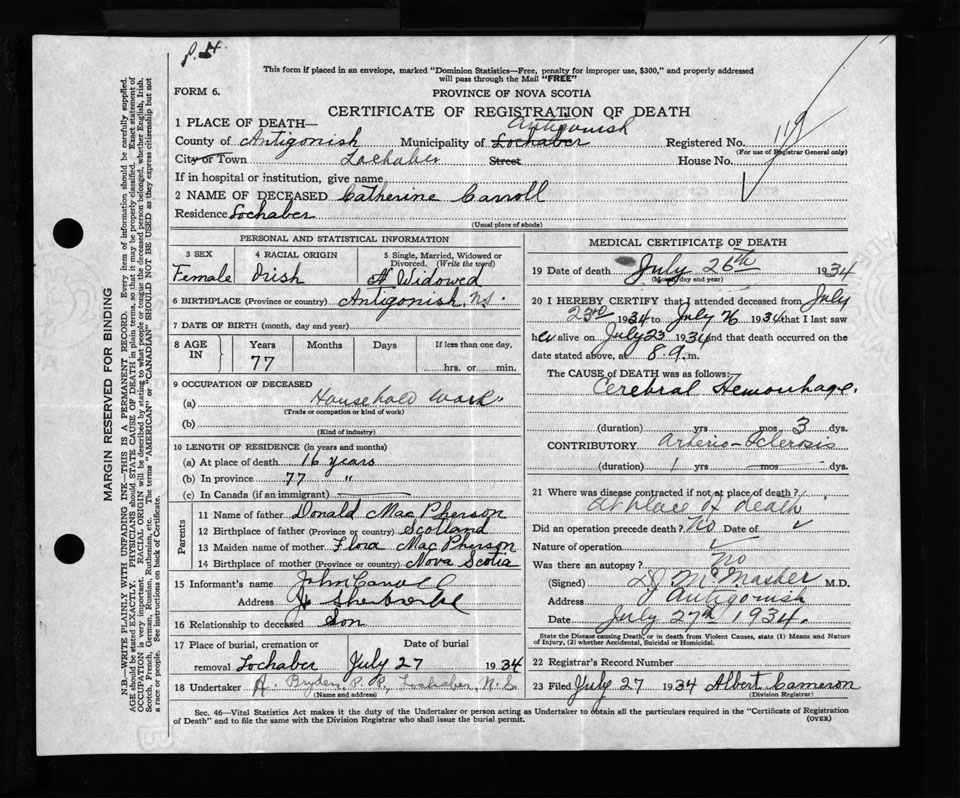 This form if placed in an envelope, marked "Dominion Statistics—Free, penalty for improper use, $300," and properly addressed
will pass through the Mail "FREE"
FORM 6.
PROVINCE OF NOVA SCOTIA
CERTIFICATE OF REGISTRATION OF DEATH
1 PLACE OF DEATH—
Antigonish
County of Antigonish Municipality of Lochaber Registered No. 119
(For use of Registrar General only)
City or Town Lochaber Street House No.
If in hospital or institution, give name
2 NAME OF DECEASED Catherine Carroll
Residence Lochaber
(Usual place of abode)
PERSONAL AND STATISTICAL INFORMATION
3 SEX 4 RACIAL ORIGIN 5 Single, Married, Widowed or
Divorced. (Write the word)
Female Irish Widowed
6 BIRTHPLACE (Province or country) Antigonish, N.S.
7 DATE OF BIRTH (month, day and year)
8 AGE IN Years Months Days If less than one day,
77 hrs. or min.
9 OCCUPATION OF DECEASED
(a) Household Work
(Trade or occupation or kind of work)
(b)
(Kind of industry)
10 LENGTH OF RESIDENCE (in years and months)
(a) At place of death 16 years
(b) In province 77 "
(c) In Canada (if an immigrant)
Parents
11 Name of father Donald MacPherson
12 Birthplace of father (Province or country) Scotland
13 Maiden name of mother Flora MacPherson
14 Birthplace of mother (Province or country) Nova Scotia
15 Informant's name John Carroll
Address Sherbrooke
16 Relationship to deceased Son
17 Place of burial, cremation or Date of burial
removal Lochaber July 27 1934
18 Undertaker Bryden, P.P., Lochaber, N.S.
(Name and address)
MEDICAL CERTIFICATE OF DEATH
19 Date of death July 26th 1934
(Month, day and year)
20 I HEREBY CERTIFY that I attended deceased from July
23rd 1934 to July 26 1934 that I last saw
her alive on July 23 1934 and that death occurred on the
date stated above, at 8.9. m.
The CAUSE OF DEATH was as follows:
Cerebral Hemorrhage.
(duration) yrs mos 3 dys.
CONTRIBUTORY Arterio-Sclerosis
(duration) 1 yrs mos dys.
21 Where was disease contracted if not at place of death?
At place of death
Did an operation precede death? No Date of
Nature of operation
Was there an autopsy? No
(Signed) McMaster M.D.
Address Antigonish
Date July 27th 1934.
State the Disease causing Death, or in death from Violent Causes, state (1) Means and Nature
of Injury, (2) whether Accidental, Suicidal or Homicidal.
22 Registrar's Record Number
23 Filed July 27 1934 Albert Cameron
(Division Registrar)
Sec. 46—Vital Statistics Act makes it the duty of the Undertaker or person acting as Undertaker to obtain all the particulars required in the "Certificate of Registration
of Death" and to file the same with the Division Registrar who shall issue the burial permit.
(OVER)
MARGIN RESERVED FOR BINDING
N.B.—WRITE PLAINLY WITH UNFADING INK—THIS IS A PERMANENT RECORD. Every item of information should be carefully supplied.
AGE should be stated EXACTLY. PHYSICIANS should STATE CAUSE OF DEATH in plain terms, so that it may be properly classified. Exact statement of
OCCUPATION is very important. RACIAL ORIGIN will be described by stating to what people or tongue the deceased person belonged, whether English, Irish,
Scotch, French, German, Russian, Ruthenian, etc. The terms "AMERICAN" or "CANADIAN" SHOULD NOT BE USED as they express citizenship but not
a race or people. See instructions on back of Certificate.